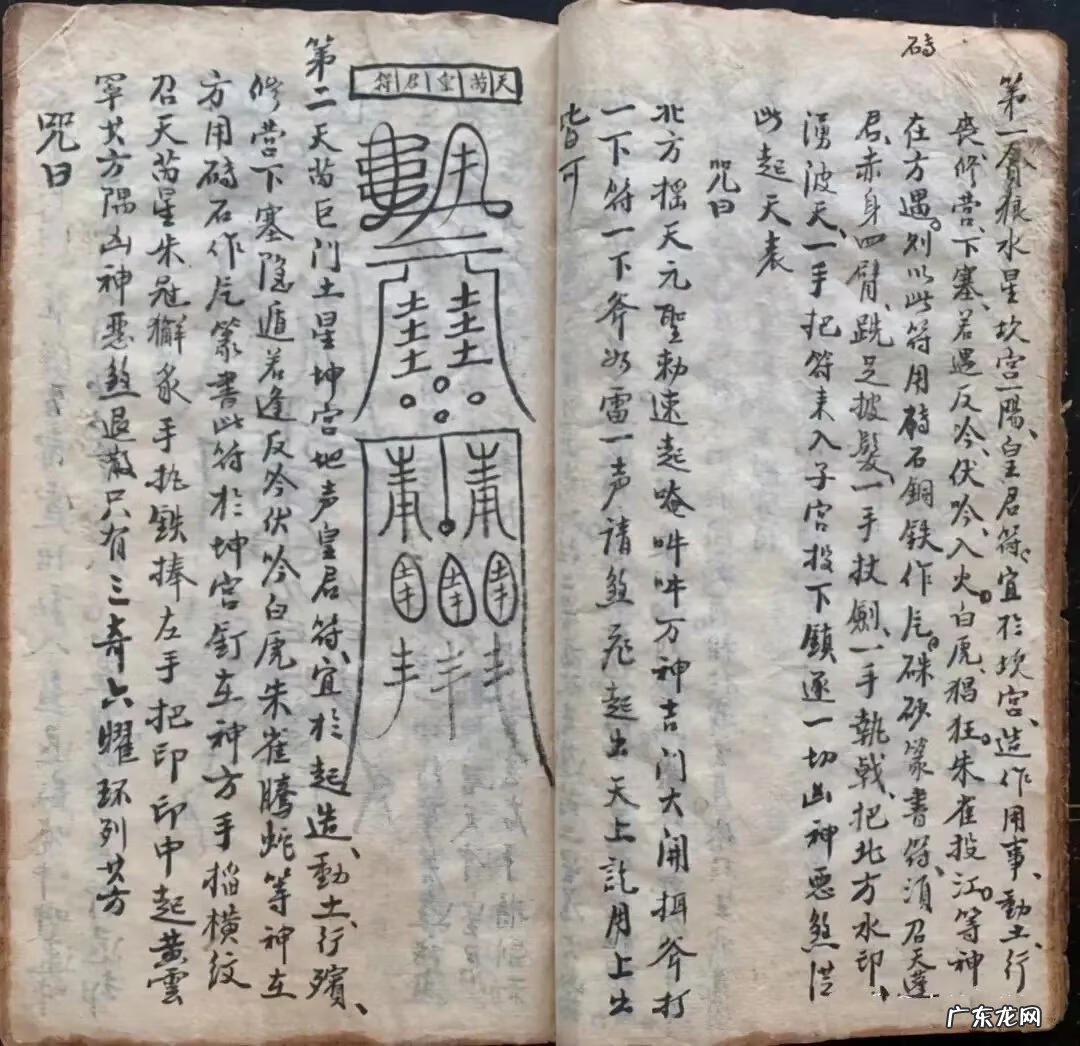 砖
第一貪狼水星坎宫一陽皇君符宜於坎宫造作用事動土行
丧修营下塞若遇反吟伏吟入火白虎猖狂朱雀投江等神
在方遇别以此符用砖石銅铁作片硃砂篆書符須召天蓬
君赤身四臂跣足披髮一手扙劍一手執戟把北方水印
湧波天一手把符来入子宫投下鎮逐一切凶神恶煞
此起天表
咒曰
北方摇天元聖勅速起唵吽吽万神吉门大開斧打
一下符一下斧如雷一声請煞起出天上月上出
皆可
天芮皇君符
第二天芮巨门土星坤宫地声皇君符宜於起造動土行殯
修营下塞隐遁若逢反吟伏吟白虎朱雀騰蛇等神在
方用砖石作片篆書此符於坤宫釘在神方手横紋
召天芮星朱冠豸手铁捧左手把印印中起黄雲
罩其方隅凶神惡煞退散只有三奇六耀环列其方
咒曰
广东龙网